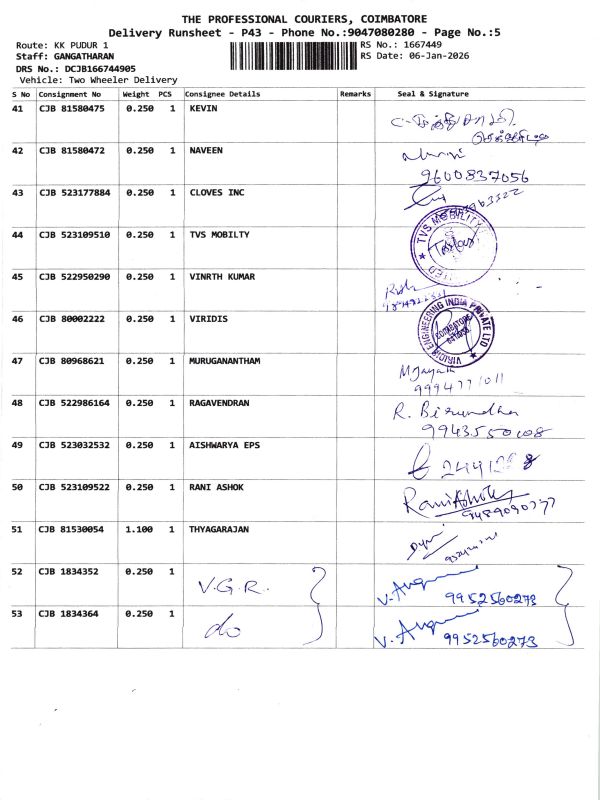 THE PROFESSIONAL COURIERS, COIMBATORE
Delivery Runsheet - P43 - Phone No.:9047080280 - Page No.:5
Route: KK PUDUR 1 RS No.: 1667449
Staff: GANGATHARAN RS Date: 06-Jan-2026
DRS No.: DCJB166744905
Vehicle: Two Wheeler Delivery
S No Consignment No Weight PCS Consignee Details Remarks Seal & Signature
41 CJB 81580475 0.250 1 KEVIN
42 CJB 81580472 0.250 1 NAVEEN
9600837056
43 CJB 523177884 0.250 1 CLOVES INC
44 CJB 523109510 0.250 1 TVS MOBILTY
TVS MOBILITY
45 CJB 522950290 0.250 1 VINRTH KUMAR
46 CJB 80002222 0.250 1 VIRIDIS
VIRIDIS ENGINEERING INDIA PRIVATE LTD
COIMBATORE
47 CJB 80968621 0.250 1 MURUGANANTHAM
9994771011
48 CJB 522986164 0.250 1 RAGAVENDRAN
R. Birundha
9943550108
49 CJB 523032532 0.250 1 AISHWARYA EPS
50 CJB 523109522 0.250 1 RANI ASHOK
Rani Ashok
51 CJB 81530054 1.100 1 THYAGARAJAN
52 CJB 1834352 0.250 1 V.G.R.
9952560273
53 CJB 1834364 0.250 1 do
9952560273